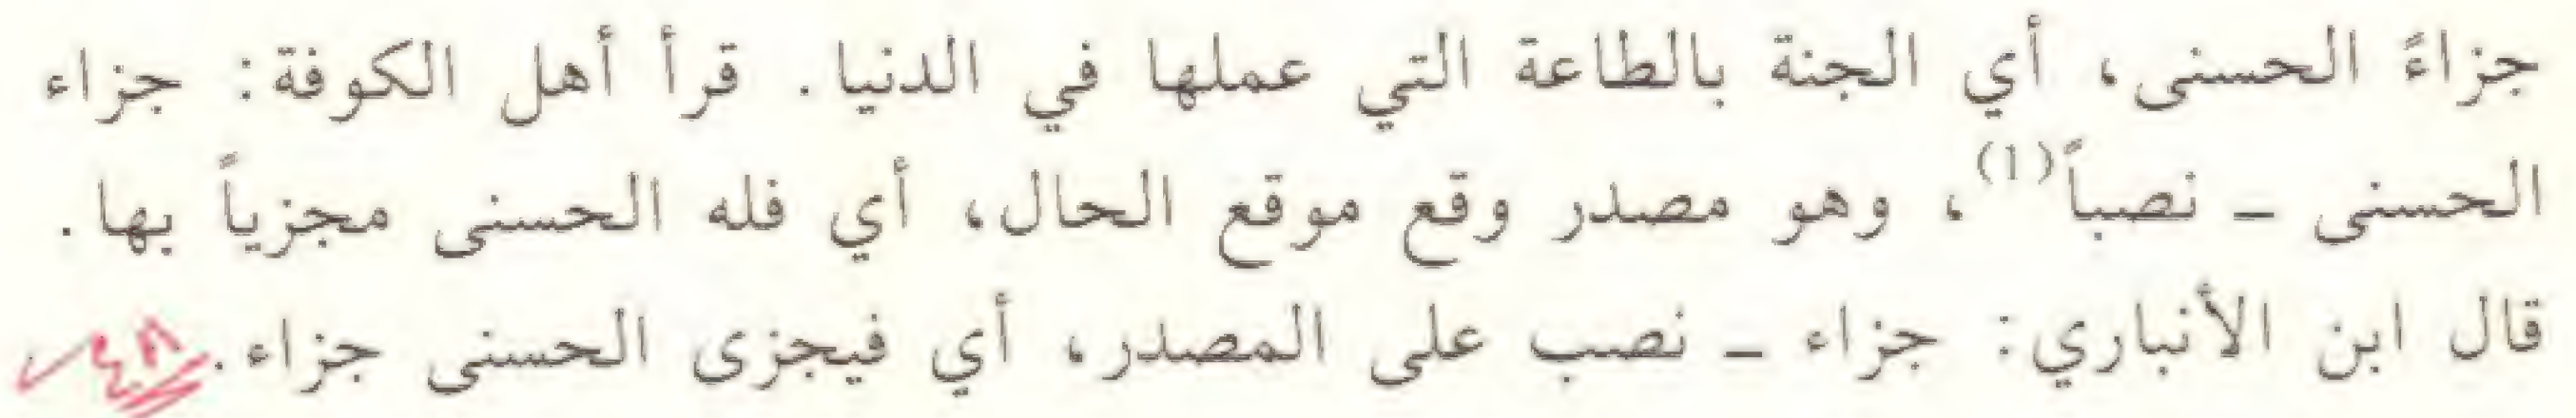 جزاءً الحسنى، أي الجنة بالطاعة التي عملها في الدنيا. قرأ أهل الكوفة: جزاء
الحسنى ــ نصباً(١)، وهو مصدر وقع موقع الحال، أي فله الحسنى مجزياً بها.
قال ابن الأنباري: جزاء ــ نصب على المصدر، أي فيجزى الحسنى جزاء.